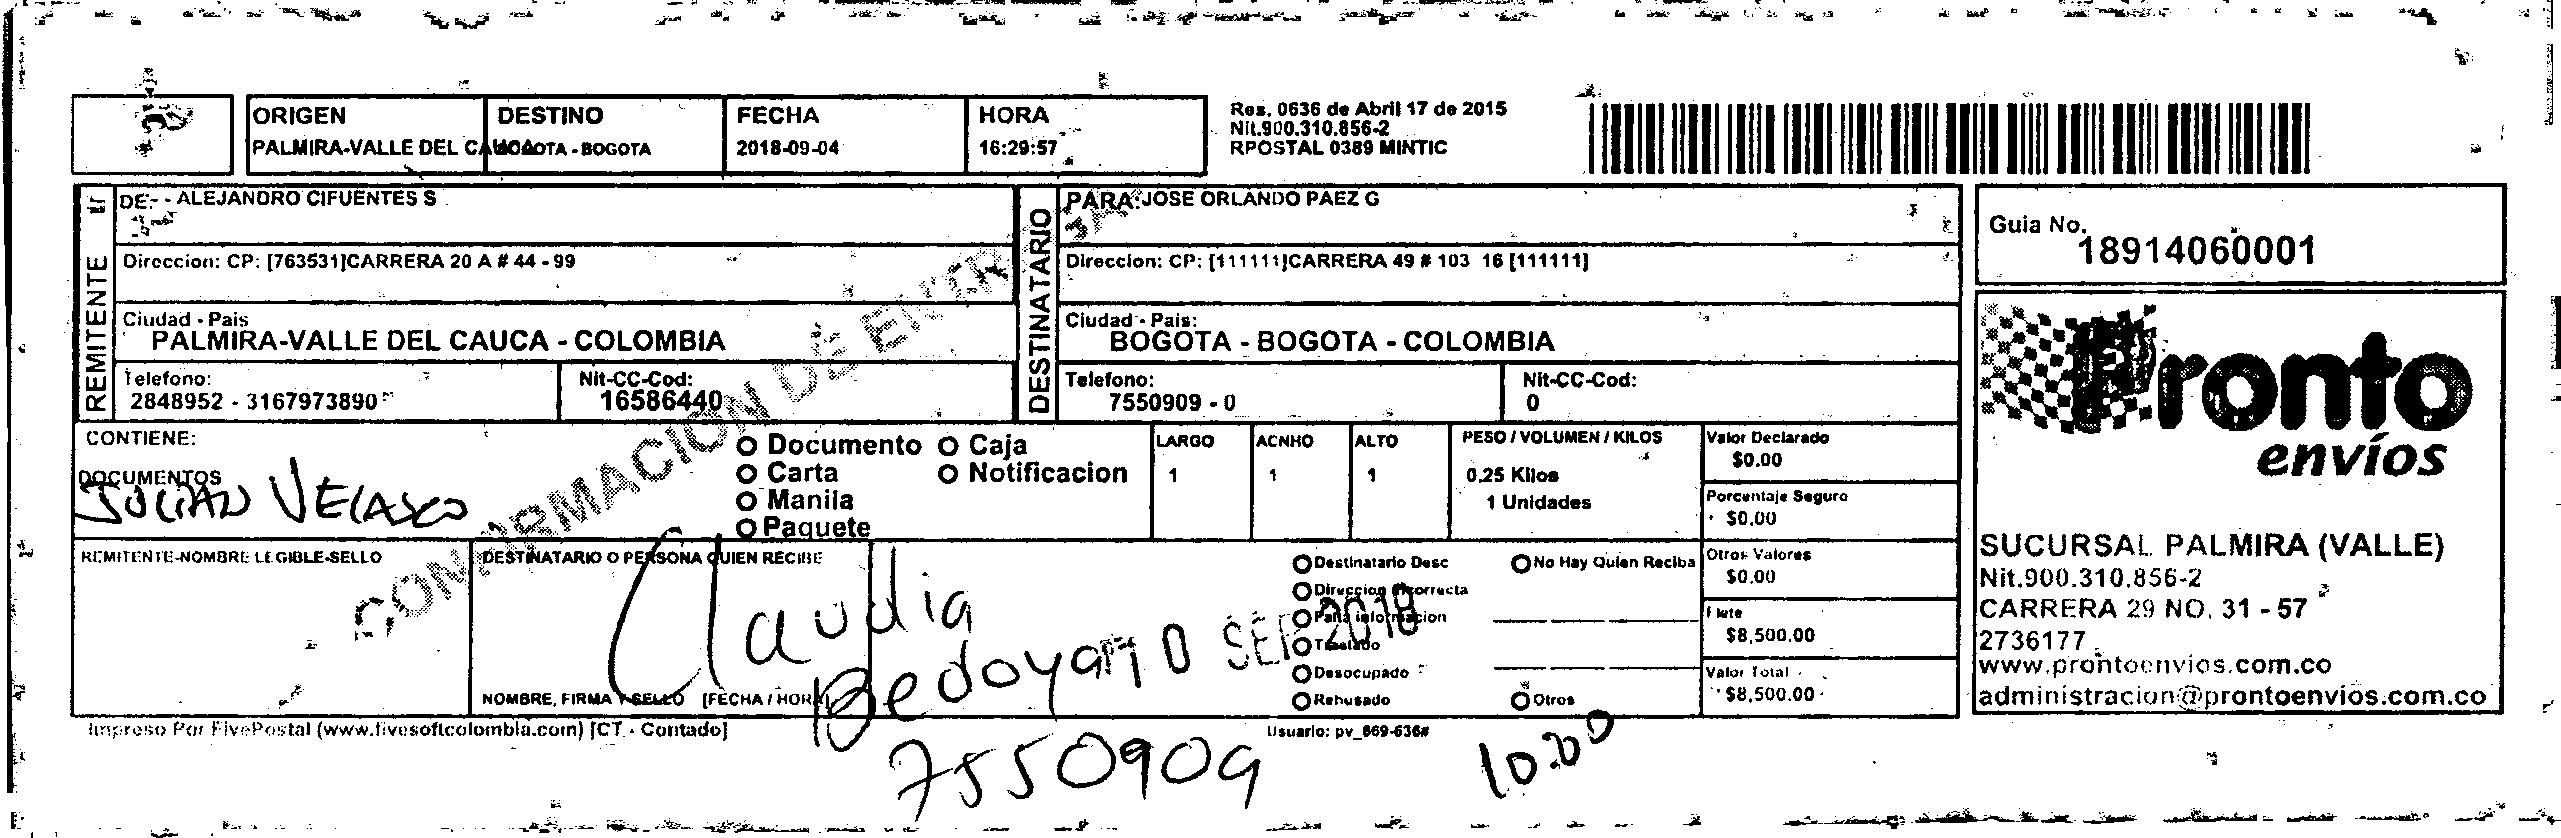 ORIGEN DESTINO FECHA HORA
PALMIRA-VALLE DEL CAUCA BOGOTA - BOGOTA 2018-09-04 16:29:57
Res. 0636 de Abril 17 de 2015
Nit.900.310.856-2
RPOSTAL 0389 MINTIC
REMITENTE
DE:- - ALEJANDRO CIFUENTES S
Direccion: CP: [763531]CARRERA 20 A # 44 - 99
Ciudad - Pais
PALMIRA-VALLE DEL CAUCA - COLOMBIA
Telefono: Nit-CC-Cod:
2848952 - 3167973890 16586440
DESTINATARIO
PARA:JOSE ORLANDO PAEZ G
Direccion: CP: [111111]CARRERA 49 # 103 16 [111111]
Ciudad - Pais:
BOGOTA - BOGOTA - COLOMBIA
Telefono: Nit-CC-Cod:
7550909 - 0 0
Guia No.
18914060001
Pronto
envíos
SUCURSAL PALMIRA (VALLE)
Nit.900.310.856-2
CARRERA 29 NO. 31 - 57
2736177
www.prontoenvios.com.co
administracion@prontoenvios.com.co
CONTIENE:
DOCUMENTOS
JULIAN VELASCO
Documento Caja
Carta Notificacion
Manila
Paquete
LARGO ACNHO ALTO PESO / VOLUMEN / KILOS
1 1 1 0,25 Kilos
1 Unidades
Valor Declarado
$0.00
Porcentaje Seguro
$0.00
Otros Valores
$0.00
Flete
$8,500.00
Valor Total
$8,500.00
CONFIRMACION DE
REMITENTE-NOMBRE LEGIBLE-SELLO
DESTINATARIO O PERSONA QUIEN RECIBE
Claudia
Bedoya
SEP 2018
7550909
NOMBRE, FIRMA Y SELLO [FECHA / HORA]
Destinatario Desc No Hay Quien Reciba
Direccion Incorrecta
Falta informacion
Traslado
Desocupado
Rehusado Otros
Impreso Por FivePostal (www.fivesoftcolombia.com) [CT - Contado]
Usuario: pv_869-636#
10:20